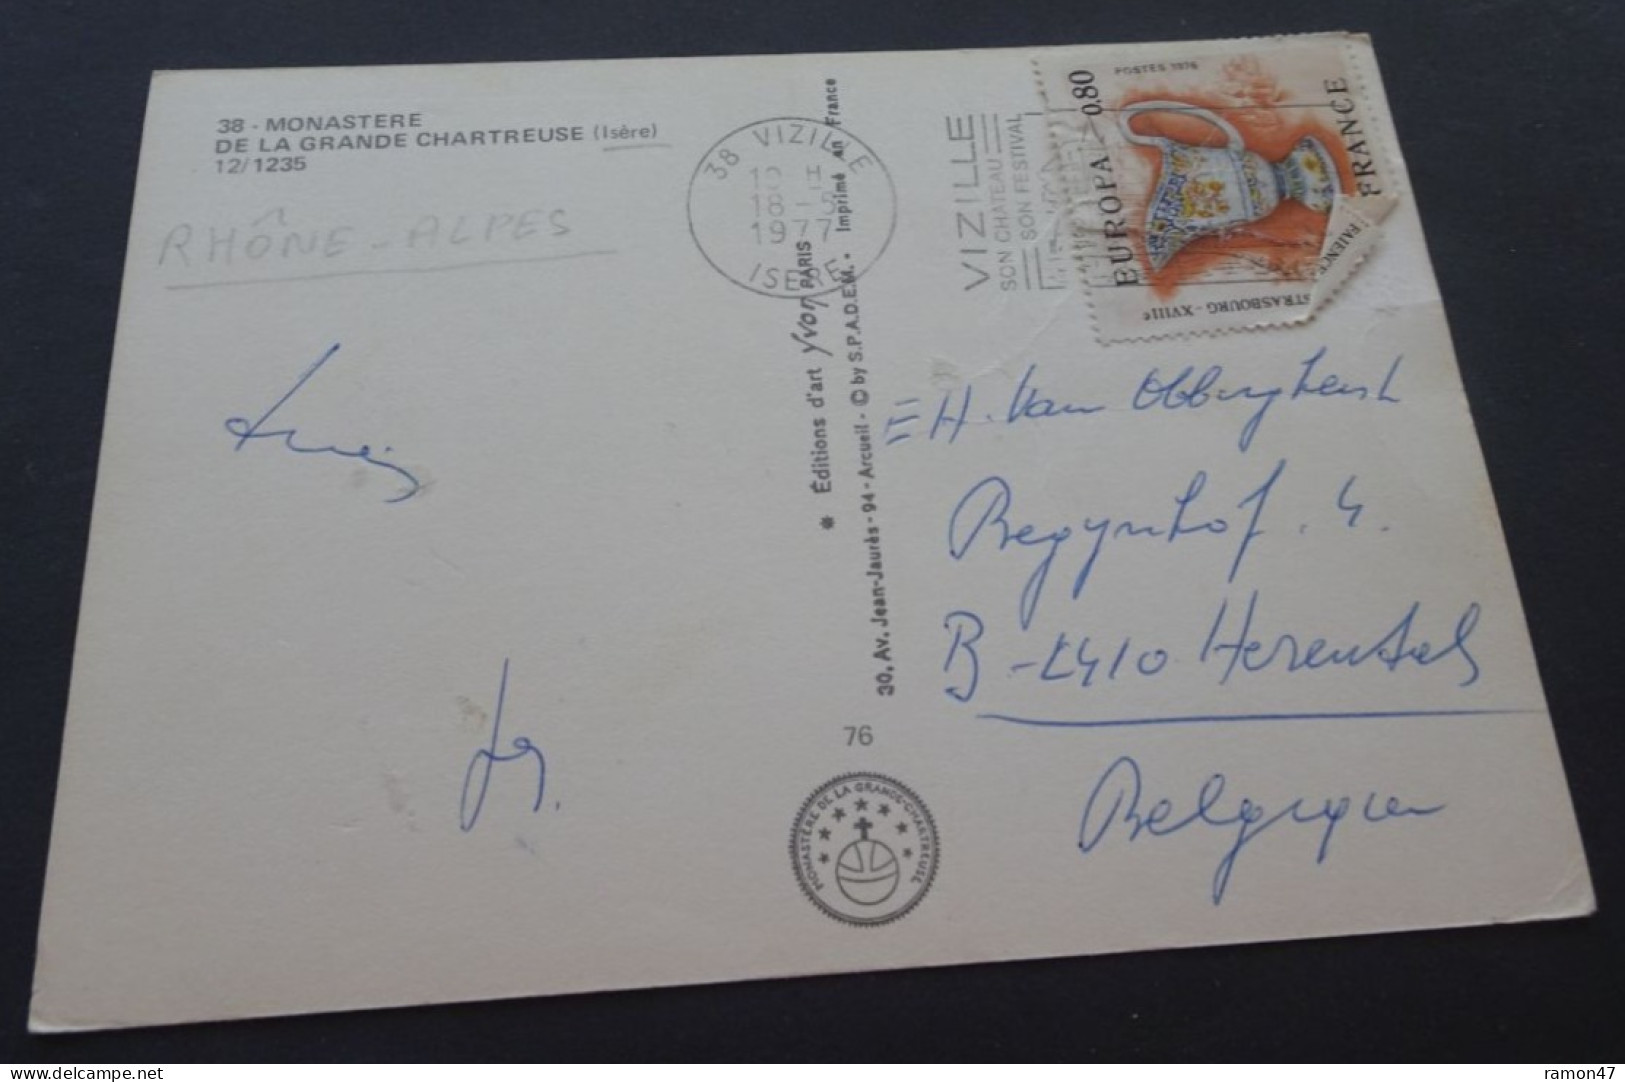 38 - MONASTERE
DE LA GRANDE CHARTREUSE (Isère)
12/1235
RHÔNE-ALPES
38 VIZILLE
18 - 8
1977
ISERE
VIZILLE
SON CHATEAU
SON FESTIVAL
POSTES 1976
0.80
EUROPA
FRANCE
STRASBOURG - XVIIIe
FAIENCE
* Éditions d'art Yvon PARIS
30, Av. Jean-Jaurès - 94 - Arcueil - © by S.P.A.D.E.M. • Imprimé en France
H. Van
Begynhof. 4.
B-2410 Herentals
Belgique
76
MONASTÈRE DE LA GRANDE-CHARTREUSE
ramon47